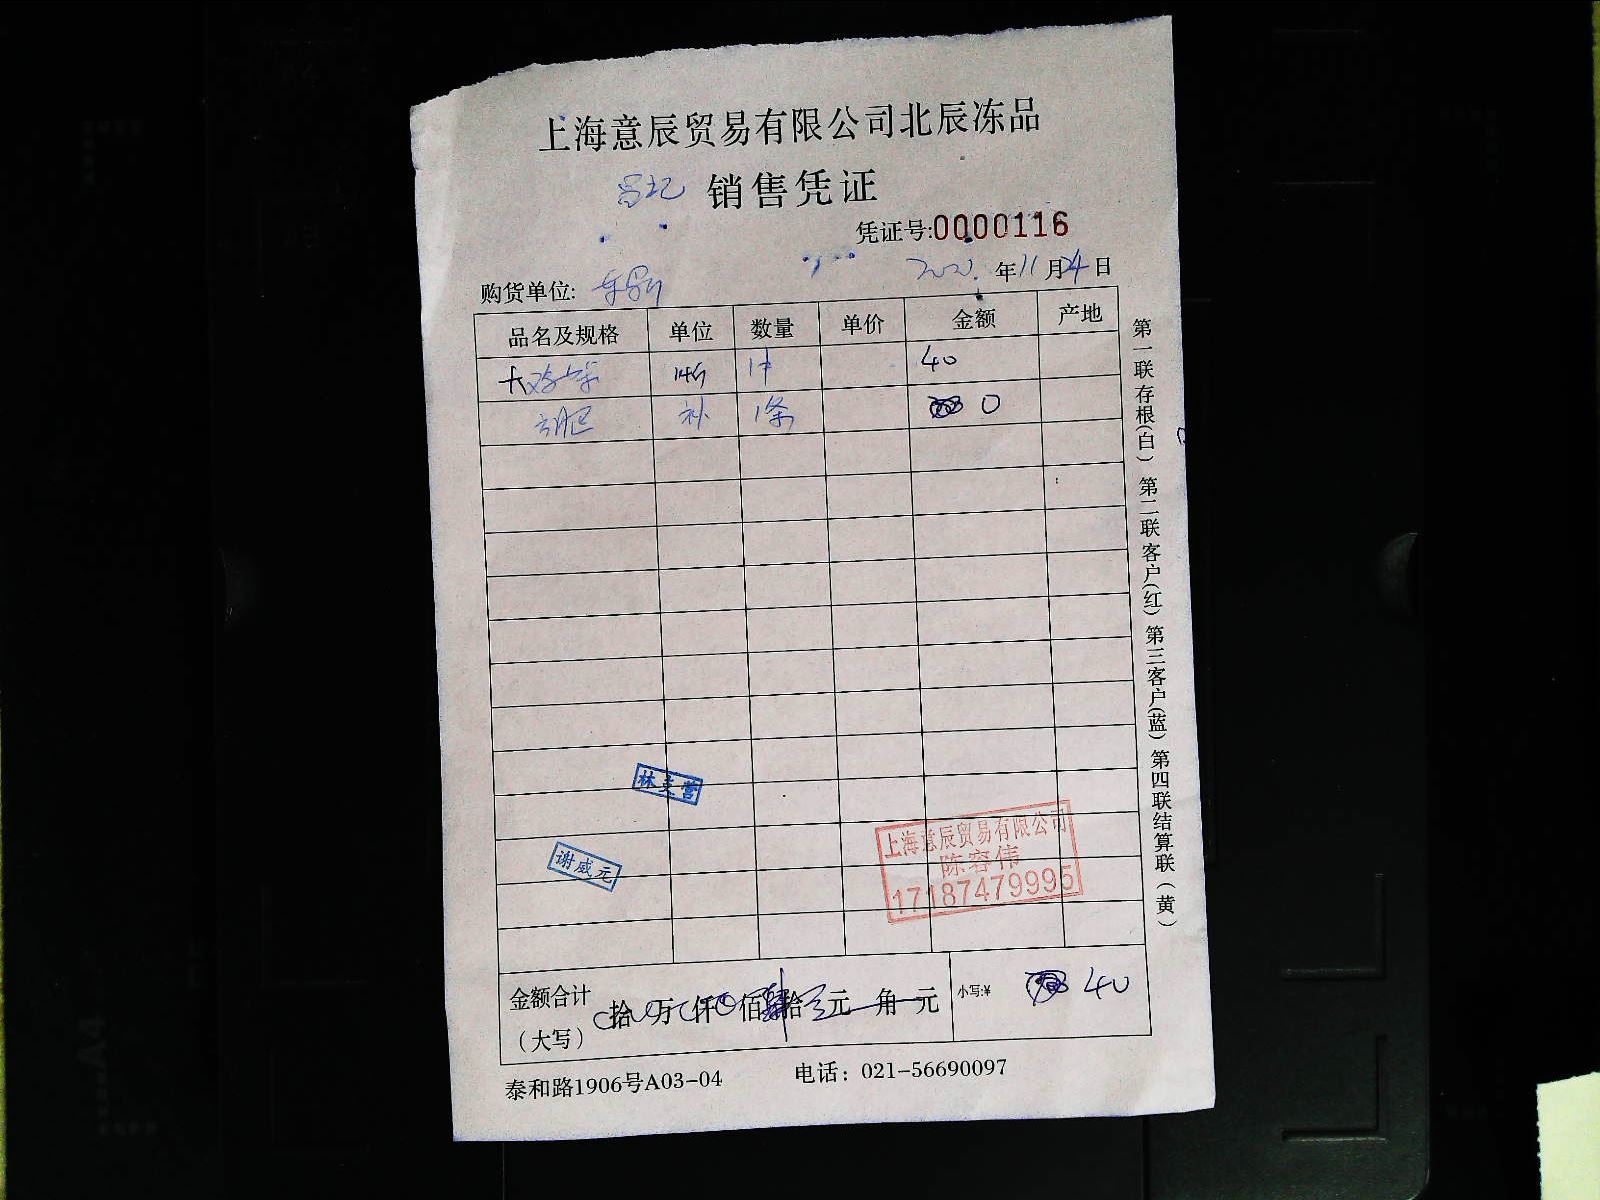 上海意辰贸易有限公司北辰冻品
销售凭证
凭证号:0000116
年11月24日
购货单位:
品名及规格 单位 数量 单价 金额 产地
40
肥 补 1条 0
林 营
谢威元
上海意辰贸易有限公司
陈容伟
17187479995
金额合计
(大写)
拾 万 仟 佰 拾 元 角 元
小写:¥ 40
泰和路1906号A03-04 电话: 021-56690097
第一联存根(白) 第二联客户(红) 第三客户(蓝) 第四联结算联(黄)